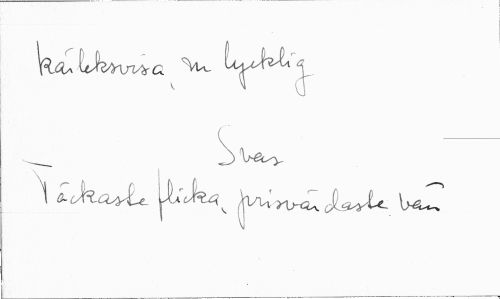 kärleksvisa, m lycklig
Svar
Täckaste flicka, prisvärdaste vän